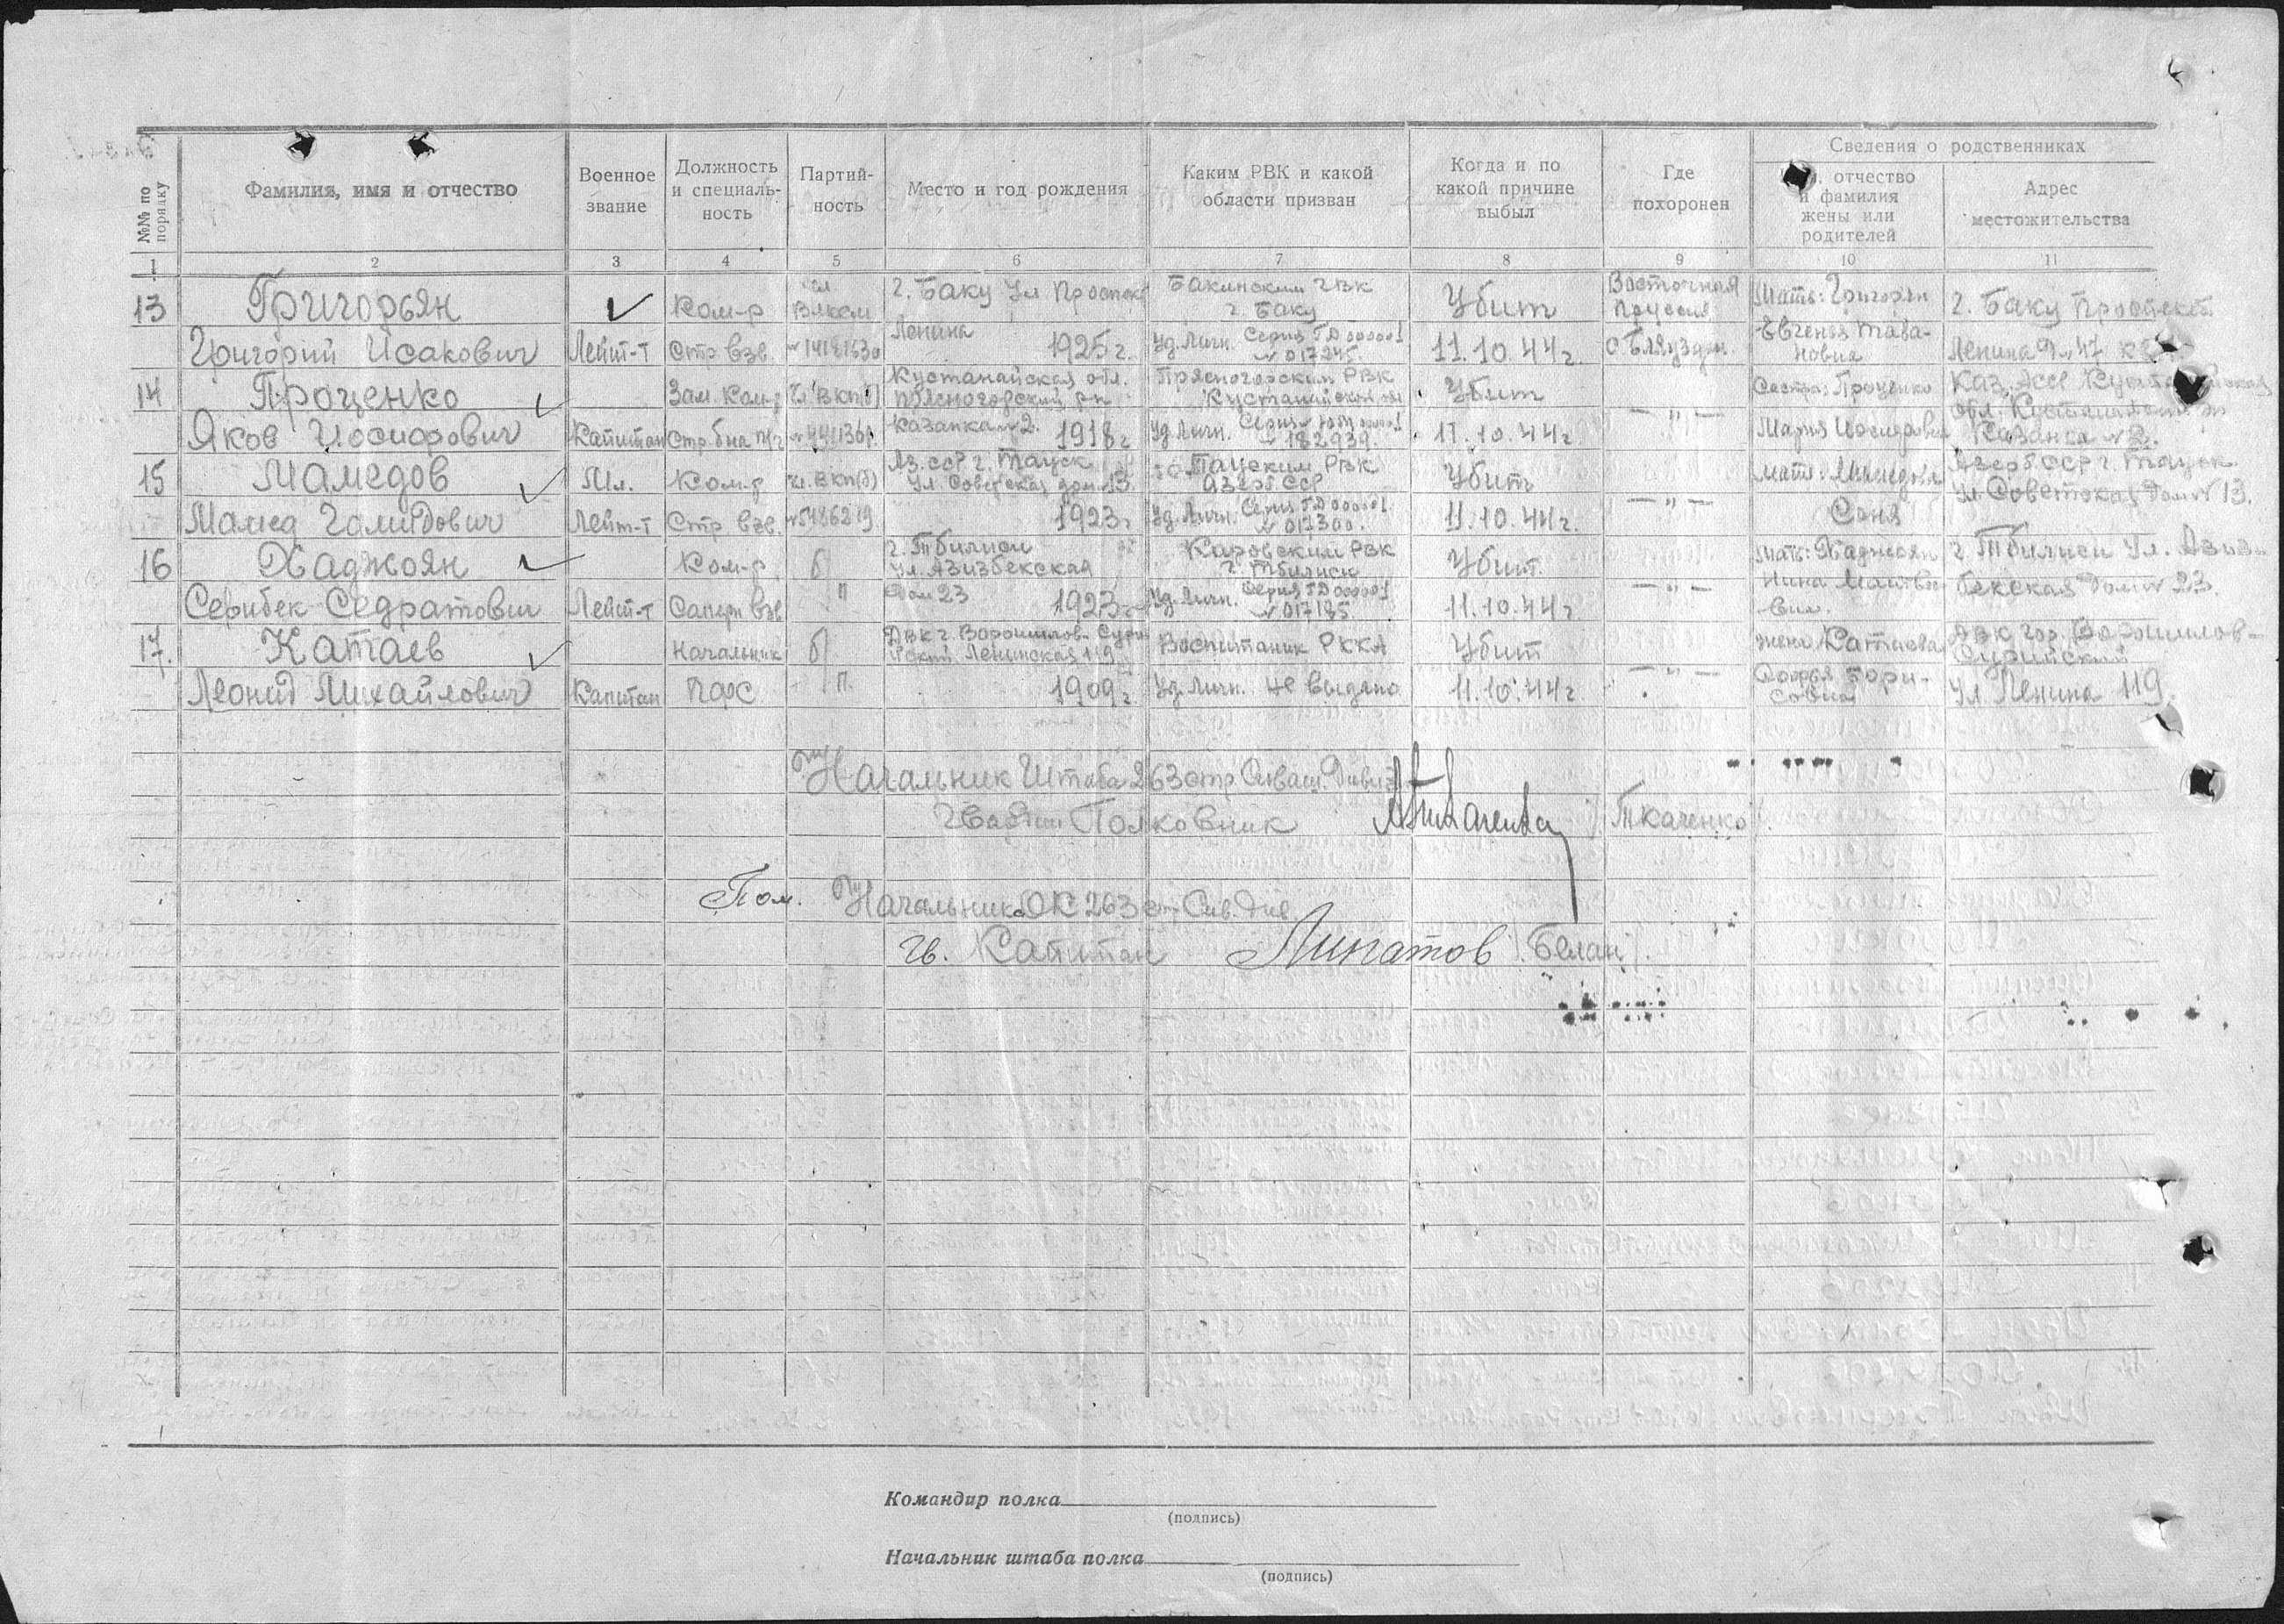 №№ по порядку
Фамилия, имя и отчество
Военное звание
Должность и специаль-ность
Партий-ность
Место и год рождения
Каким РВК и какой области призван
Когда и по какой причине выбыл
Где похоронен
Сведения о родственниках
отчество и фамилия жены или родителей
Адрес местожительства
1 2 3 4 5 6 7 8 9 10 11
13 Григорьян Ком-р Влксм г. Баку Ул Проспект Бакинским ГВК г. Баку Убит Восточная Пруссия Мать: Григорян г. Баку Проспект
Григорий Исакович Лейт-т Стр. Взв. Ленина 1925 г. Уд. Личн. Серия ГД 000001 № 017245. 11.10.44 г. Евгения Ленина
14 Проценко Зам. Ком-р Чл. ВКП(б) Кустанайская обл. Пресногорским РВК Кустанайской Убит Сестра: Проценко Каз. АССР
Яков Иосифович Капитан Казанка № 2. 1918 г Уд Личн. Серия № 182939. 11.10.44 г. — " — Мария Казанка № 2.
15 Мамедов Мл. Ком-р чл. ВКП(б) Аз. ССР г. Тауск Ул. Советская дом 13 Тауским РВК Азерб. ССР Убит мать: Мамедова Азерб ССР г. Тауск
Мамед Лейт-т Стр Взв. № 5486219 1923 г Уд. Личн. Серия ГД 000001 № 017300. 11.10.44 г. — " — Соня Ул. Советская Дом № 13.
16 Хаджоян Ком-р б/ г. Тбилиси Ул. Азизбекская Кировским РВК г. Тбилиси Убит. Мать: Хаджоян г Тбилиси Ул. Азиз-
Серибек Седратович Лейт-т Сапер Взв п Дом 23 1923 г Уд. Личн. Серия ГД 000001 № 017135 11.10.44 г — " — Нина бекская Дом № 23.
17. Катаев Начальник б/ ДВК г. Ворошилов- Воспитаник РККА Убит жена Катаева ДВК гор. Ворошилов-
Леонид Михайлович Капитан ПФС п. Ленинская 119 1909 г. Уд. Личн. не выдано 11.10.44 г — " — Бори-совна Ул Ленина 119.
Начальник Штаба 263 стр. Сиваш. Дивиз
Гвардии Полковник /Ткаченко/
Пом. Начальника ОК 263 Сив. Див
Гв. Капитан Липатов /Белан/.
Командир полка
(подпись)
Начальник штаба полка
(подпись)